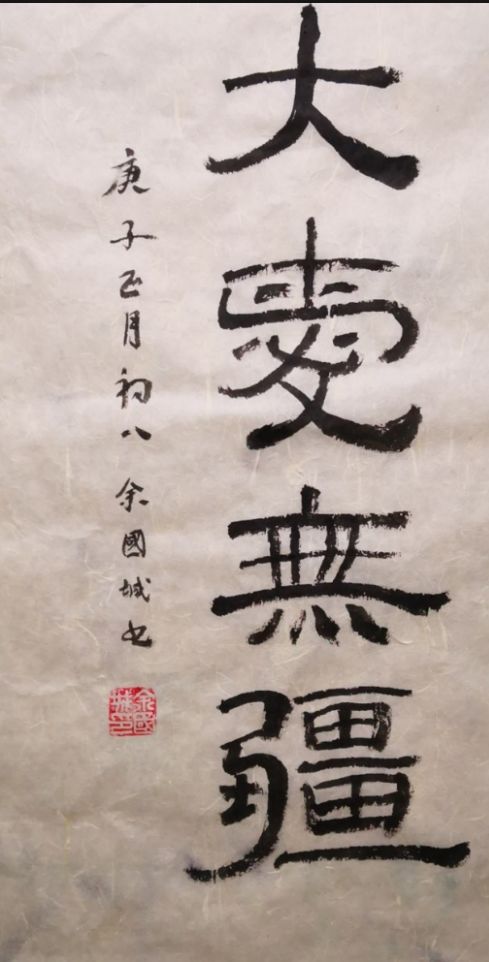 大愛無疆
庚子正月初八余國城书
余國城印